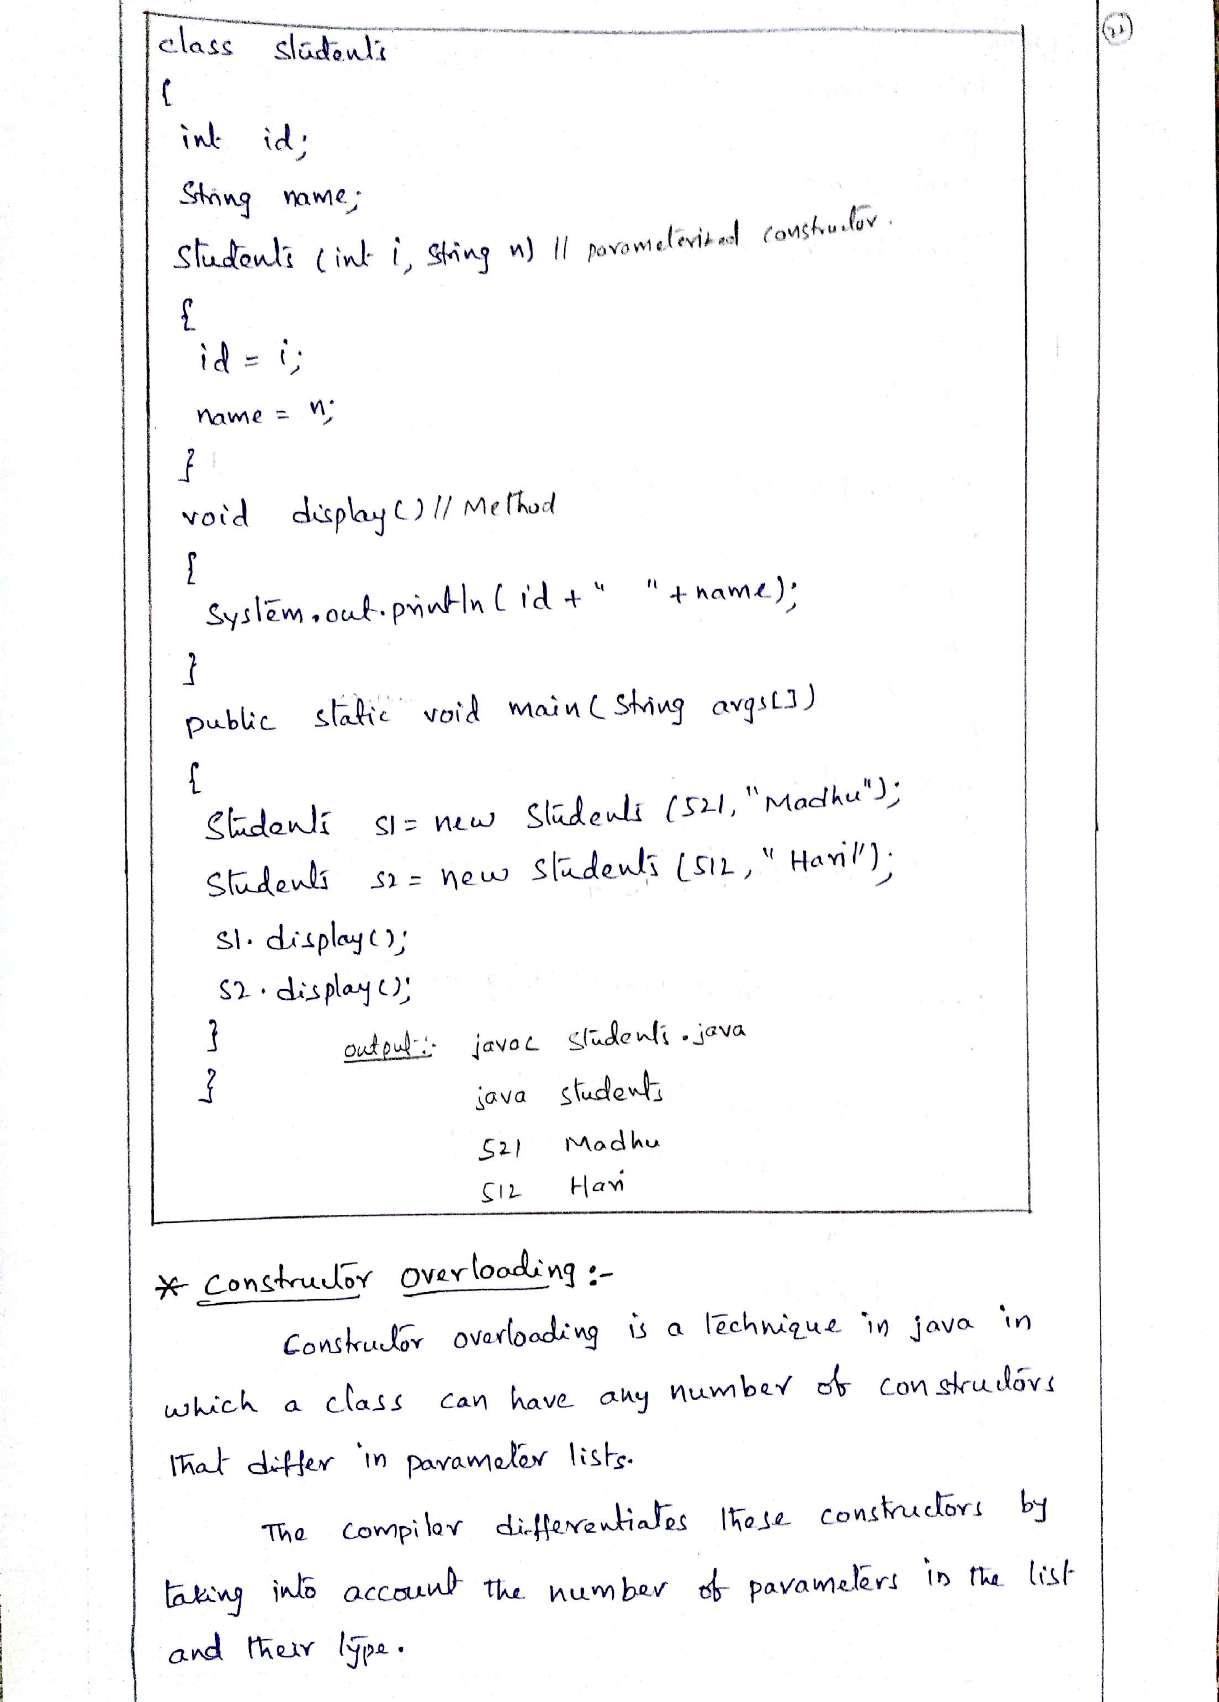 22
class students
{
int id;
String name;
Students (int i, String n) // parameterized constructor.
{
id = i;
name = n;
}
void display() // Method
{
System.out.println(id + " " + name);
}
public static void main(String args[])
{
Students s1 = new Students (521, "Madhu");
Students s2 = new Students (512, "Hari");
s1.display();
s2.display();
}
output:- javac students.java
}
java students
521 Madhu
512 Hari
* Constructor overloading :-
Constructor overloading is a technique in java in
which a class can have any number of constructors
that differ in parameter lists.
The compiler differentiates these constructors by
taking into account the number of parameters in the list
and their type.